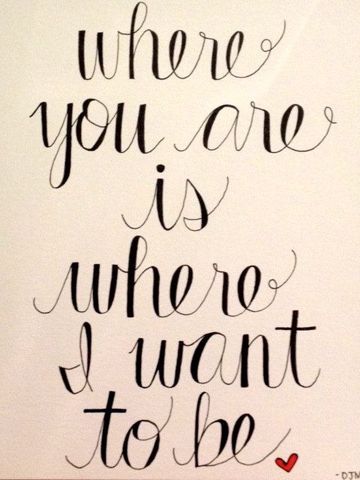 where
you are
is
where
I want
to be.